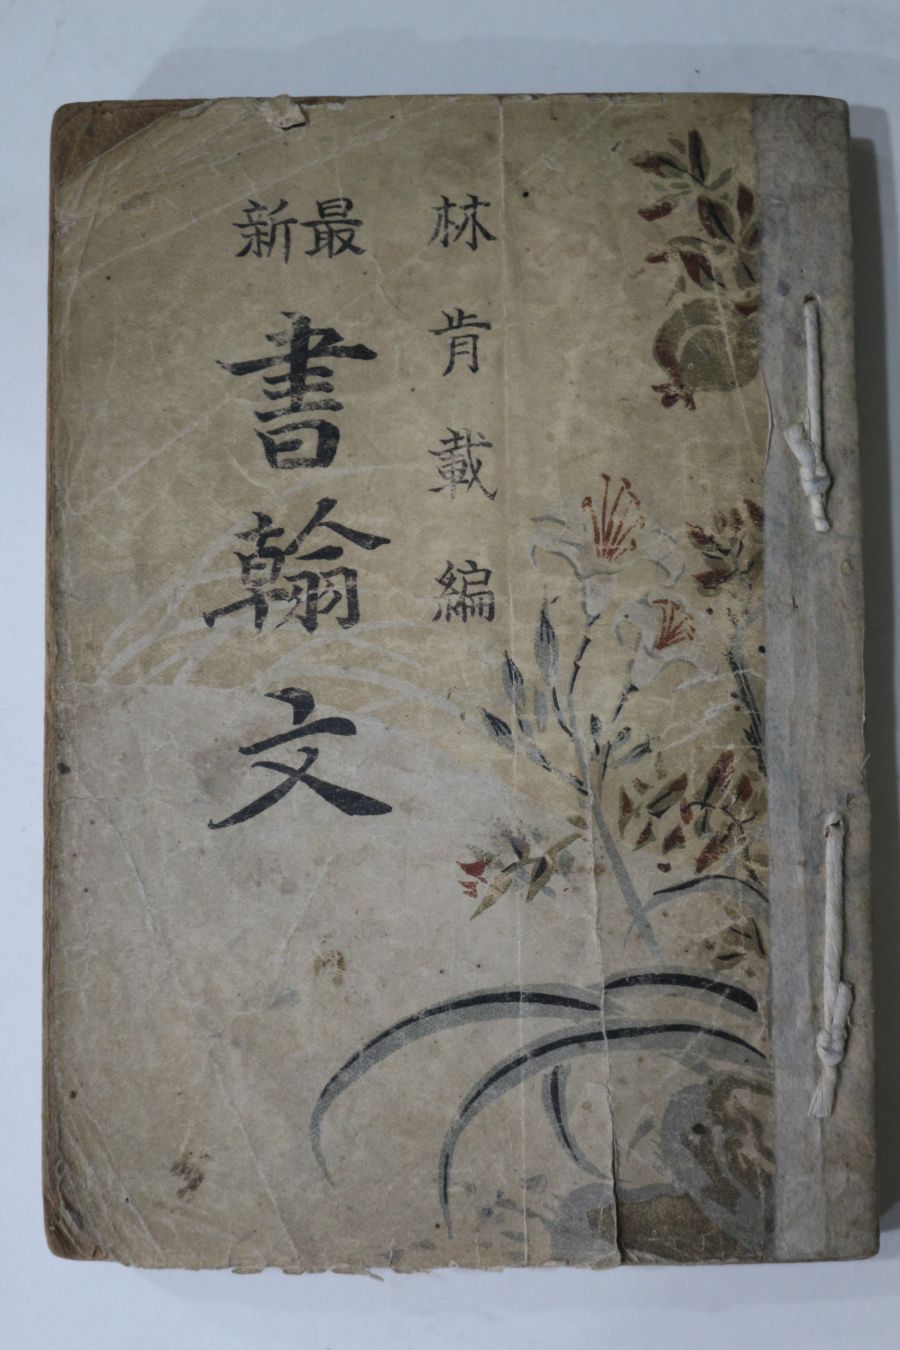 林肯載編
最新
書翰文